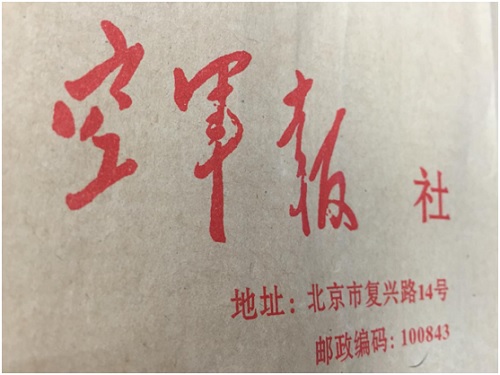 空军报社
地址：北京市复兴路14号
邮政编码：100843